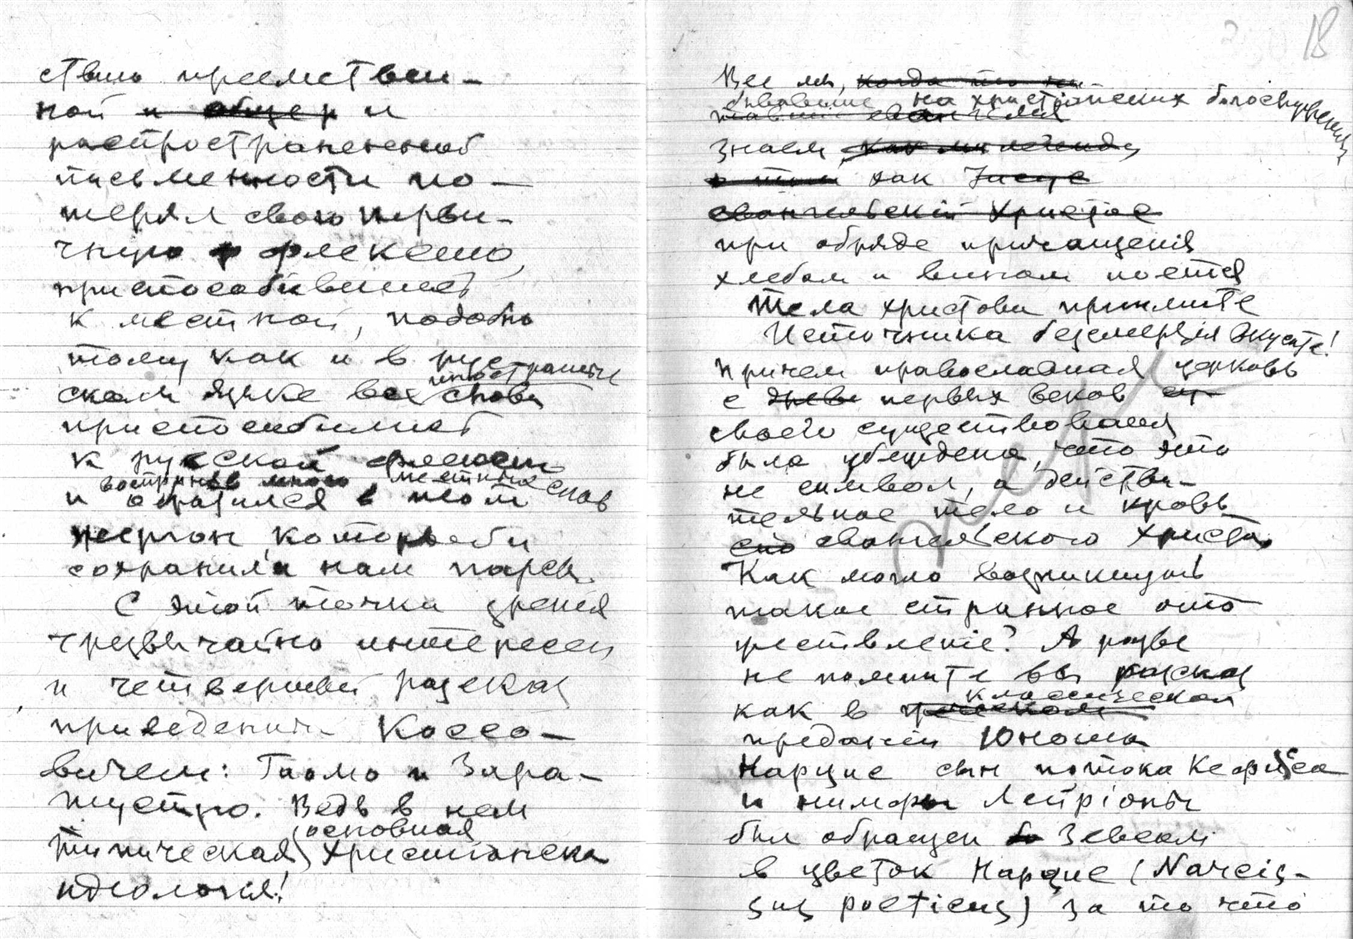 ствию преемствен-
ной и общер и
распространенной
письменности по-
терял свою перви-
чную флексию,
приспособившись
к местной, подобно
тому как и в рус
ском языке все иностранные слова
приспособились
к русской флексии
восприняв много местных слов
и обратился в том
жаргон, который бы
сохранили нам парсы.
С этой точки зрения
чрезвычайно интересен
и четвертый рассказ
приведенный Коссо-
вичем: Гаомо и Зара-
тустро. Ведь в нем
основная
типическая христианска
идеология!
18
Все мы, когда то
бывавшие на христианских богослужениях
знаем, как мы
о том как Иисус
евангельский Христос
при обряде причащенія
хлебом и вином поется
Тела христова примите
Источника безсмертія вкусите!
Причем православная церковь
с древ первых веков ег
своего существования
была убеждена, что это
не символ, а действи-
тельное тело и кровь
его евангельского Христа.
Как могло возникнуть
такое странное ото
жествленіе? А разве
не помните вы рассказ
классическом
как в греческом
преданіи Юноша
Нарцис сын потока Кефиса
и нимфы Лейріопы
был обращен Зевсом
в цветок Нарцис (Narcis-
sus poeticus) за то что